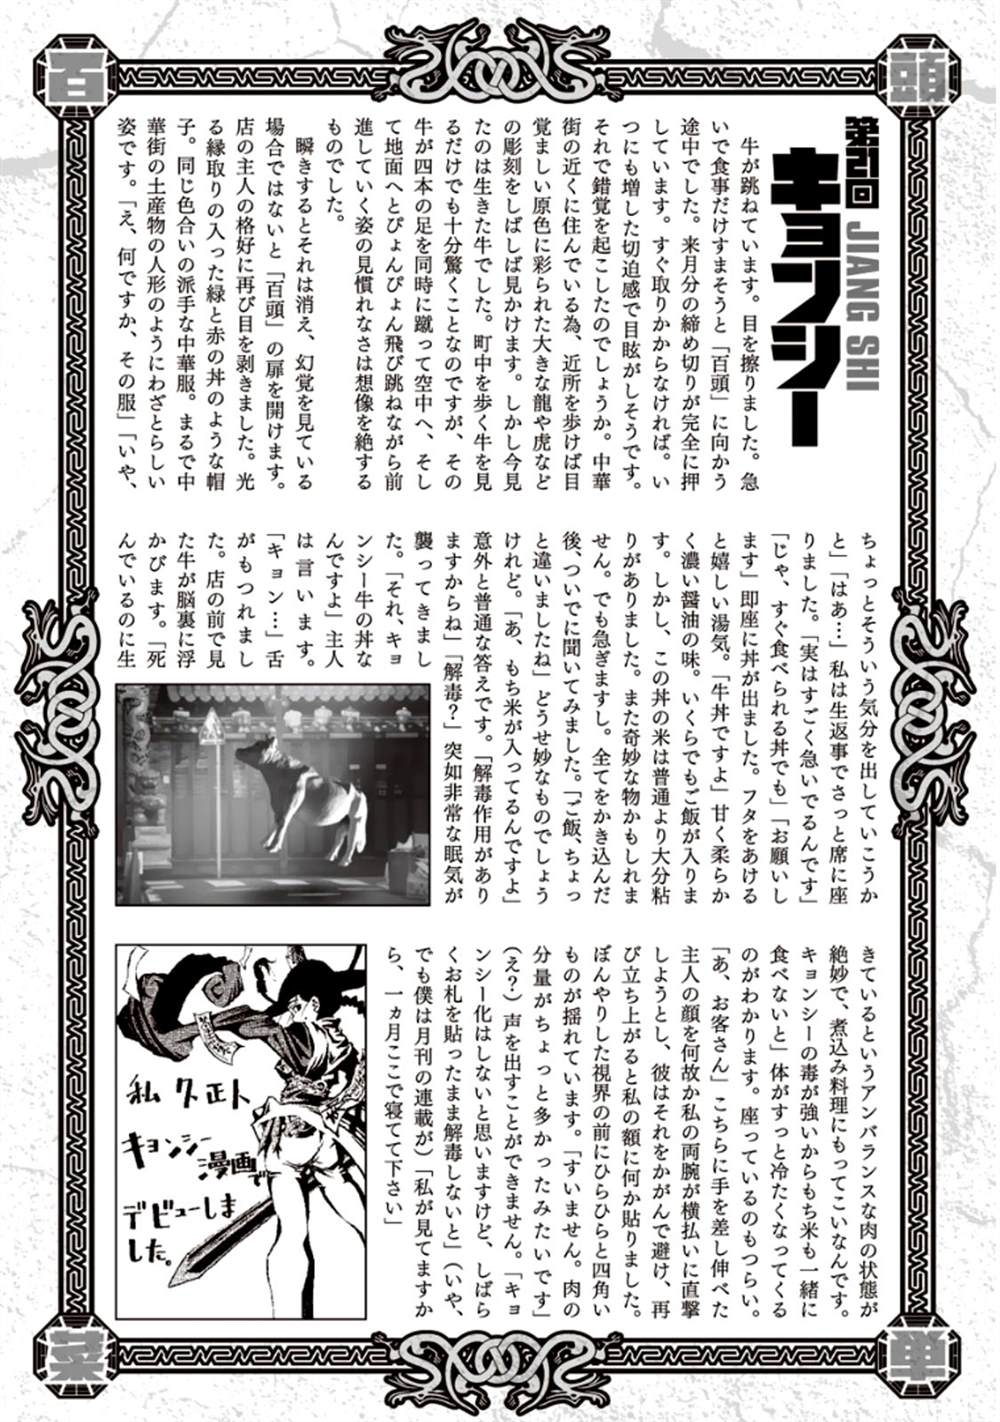 百
頭
菜
単
第21回
キョンシー
JIANG SHI
牛が跳ねています。目を擦りました。急
いで食事だけすまそうと「百頭」に向かう
途中でした。来月分の締め切りが完全に押
しています。すぐ取りかからなければ。い
つにも増した切迫感で目眩がしそうです。
それで錯覚を起こしたのでしょうか。中華
街の近くに住んでいる為、近所を歩けば目
覚ましい原色に彩られた大きな龍や虎など
の彫刻をしばしば見かけます。しかし今見
たのは生きた牛でした。町中を歩く牛を見
るだけでも十分驚くことなのですが、その
牛が四本の足を同時に蹴って空中へ、そし
て地面へとぴょんぴょん飛び跳ねながら前
進していく姿の見慣れなさは想像を絶する
ものでした。
瞬きするとそれは消え、幻覚を見ている
場合ではないと「百頭」の扉を開けます。
店の主人の格好に再び目を剥きました。光
る縁取りの入った緑と赤の丼のような帽
子。同じ色合いの派手な中華服。まるで中
華街の土産物の人形のようにわざとらしい
姿です。「え、何ですか、その服」「いや、
ちょっとそういう気分を出していこうか
と」「はあ…」私は生返事でさっと席に座
りました。「実はすごく急いでるんです」
「じゃ、すぐ食べられる丼でも」「お願いし
ます」即座に丼が出ました。フタをあける
と嬉しい湯気。「牛丼ですよ」甘く柔らか
く濃い醤油の味。いくらでもご飯が入りま
す。しかし、この丼の米は普通より大分粘
りがありました。また奇妙な物かもしれま
せん。でも急ぎますし。全てをかき込んだ
後、ついでに聞いてみました。「ご飯、ちょっ
と違いましたね」どうせ妙なものでしょう
けれど。「あ、もち米が入ってるんですよ」
意外と普通な答えです。「解毒作用があり
ますからね」「解毒?」突如非常な眠気が
襲ってきまし
た。「それ、キョ
ンシー牛の丼な
んですよ」主人
は言います。
「キョン…」舌
がもつれまし
た。店の前で見
た牛が脳裏に浮
かびます。「死
んでいるのに生
きているというアンバランスな肉の状態が
絶妙で、煮込み料理にもってこいなんです。
キョンシーの毒が強いからもち米も一緒に
食べないと」体がすっと冷たくなってくる
のがわかります。座っているのもつらい。
「あ、お客さん」こちらに手を差し伸べた
主人の顔を何故か私の両腕が横払いに直撃
しようとし、彼はそれをかがんで避け、再
び立ち上がると私の額に何か貼りました。
ぼんやりした視界の前にひらひらと四角い
ものが揺れています。「すいません。肉の
分量がちょっと多かったみたいです」
(え?)声を出すことができません。「キョ
ンシー化はしないと思いますけど、しばら
くお札を貼ったまま解毒しないと」(いや、
でも僕は月刊の連載が)「私が見てますか
ら、一ヵ月ここで寝てて下さい」
私 久正人
キョンシー
漫画で
デビューしま
した。